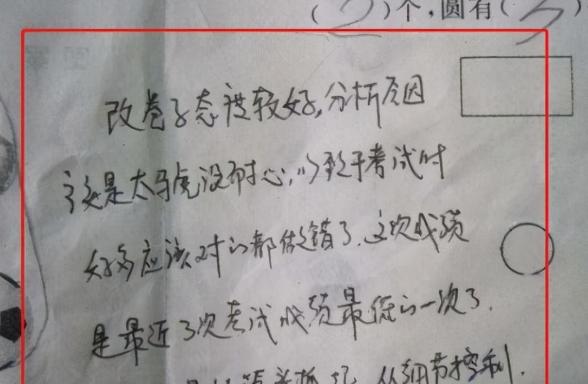 (2)个，圆有(3
改卷子态度较好，分析原因
该是太马虎没耐心，以致于考试时
好多应该对的都做错了.这次成绩
是最近3次考试成绩最低的一次了.
从细节控制.